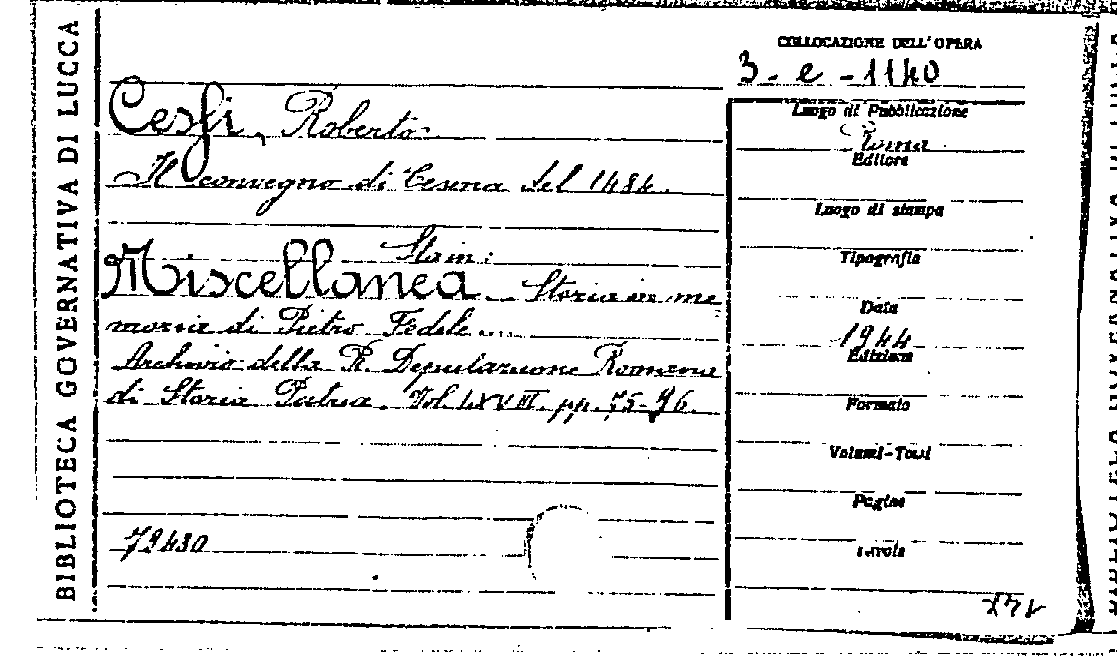 BIBLIOTECA GOVERNATIVA DI LUCCA
COLLOCAZIONE DELL'OPERA
3 - e - 1140
Cessi, Roberto.
Il convegno di Cesena del 1484.
Sta in:
Miscellanea Storia in me
moria di Pietro Fedele...
Archivio della R. Deputazione Romana
di Storia Patria. Vol. LXVII. pp. 75-96.
72430
Luogo di Pubblicazione
Roma
Editore
Luogo di stampa
Tipografia
Data
1944
Edizione
Formato
Volumi-Tomi
Pagine
Tavole